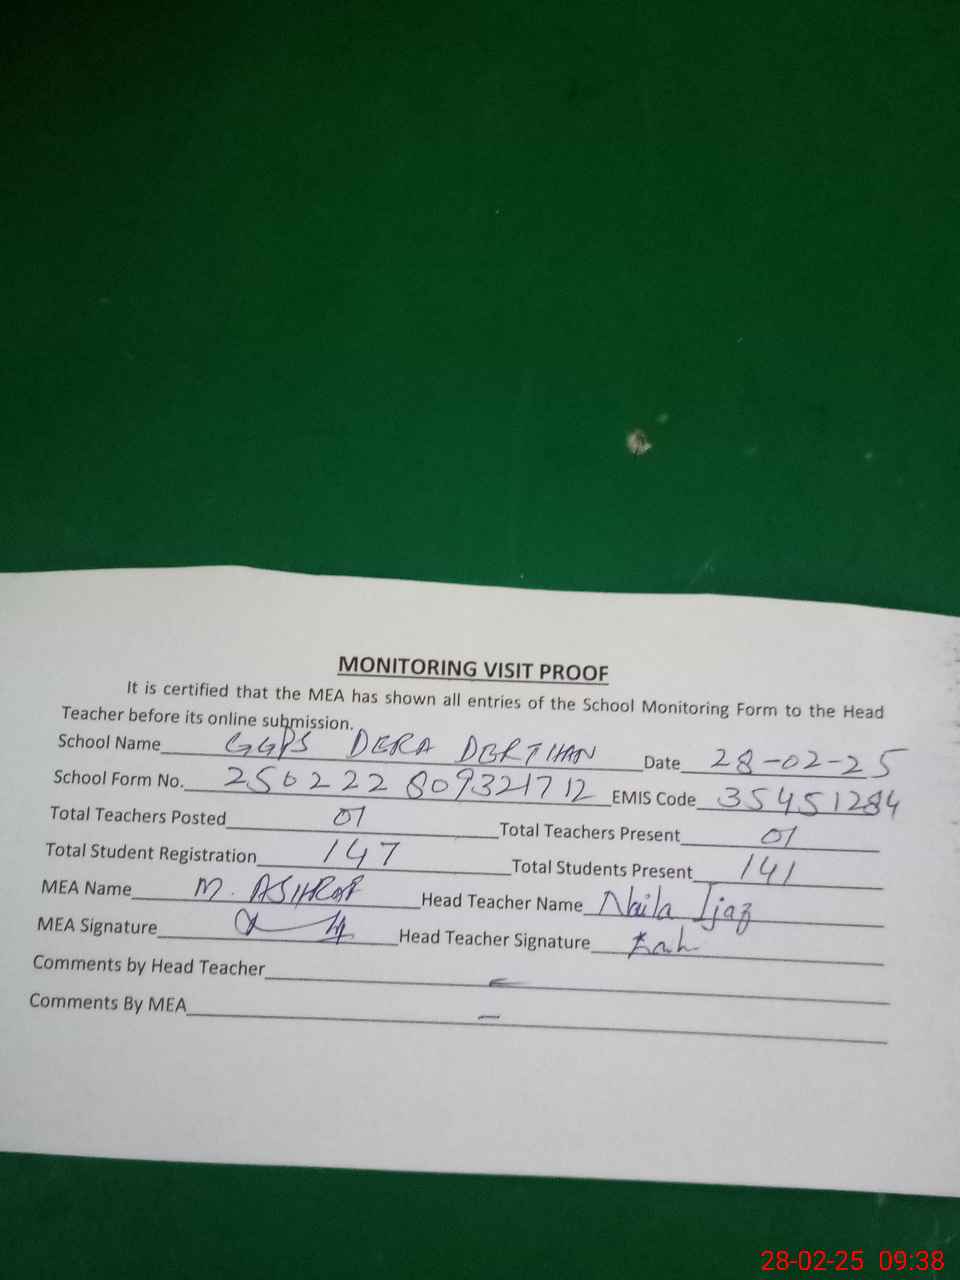 MONITORING VISIT PROOF
It is certified that the MEA has shown all entries of the School Monitoring Form to the Head
Teacher before its online submission.
School Name GGPS DERA Date 28-02-25
School Form No. 250222809321712 EMIS Code 35451284
Total Teachers Posted 01 Total Teachers Present 01
Total Student Registration 147 Total Students Present 141
MEA Name M. ASHRAF Head Teacher Name Naila Ijaz
MEA Signature Head Teacher Signature
Comments by Head Teacher –
Comments By MEA –
28-02-25 09:38